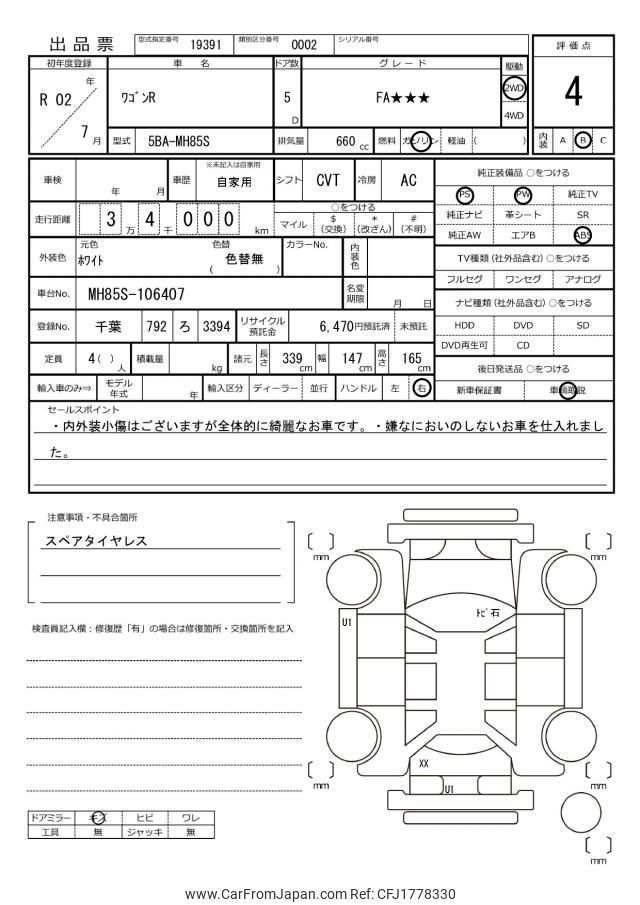 出品票 型式指定番号 19391 類別区分番号 0002 シリアル番号
評価点
4
初年度登録 車名 ドア数 グレード 駆動
R 02 年 7 月
ワゴンR 5 D FA★★★ 2WD
4WD
型式 5BA-MH85S 排気量 660 cc 燃料 ガソリン 軽油 ( )
内装 A B C
車検 年 月 車歴 ※未記入は自家用 自家用 シフト CVT 冷房 AC
走行距離 3 万 4 千 0 0 0 km
○をつける
マイル $ (交換) * (改ざん) # (不明)
外装色 元色 ホワイト 色替 ( 色替無 ) カラーNo. 内装色
車台No. MH85S-106407 名変期限 月 日
登録No. 千葉 792 ろ 3394 リサイクル預託金 6,470円預託済 未預託
定員 4( ) 人 積載量 kg 諸元 長さ 339 cm 幅 147 cm 高さ 165 cm
輸入車のみ⇒ モデル年式 年 輸入区分 ディーラー 並行 ハンドル 左 右
純正装備品 ○をつける
PS PW 純正TV
純正ナビ 革シート SR
純正AW エアB ABS
TV種類(社外品含む)○をつける
フルセグ ワンセグ アナログ
ナビ種類(社外品含む)○をつける
HDD DVD SD
DVD再生可 CD
後日発送品 ○をつける
新車保証書 車輌取説
セールスポイント
・内外装小傷はございますが全体的に綺麗なお車です。・嫌なにおいのしないお車を仕入れまし
た。
注意事項・不具合箇所
スペアタイヤレス
検査員記入欄：修復歴「有」の場合は修復箇所・交換箇所を記入
[ ] mm
[ ] mm
トビ石
U1
XX
U1
[ ] mm
[ ] mm
[ ] mm
ドアミラー キズ ヒビ ワレ
工具 無 ジャッキ 無
www.CarFromJapan.com Ref: CFJ1778330